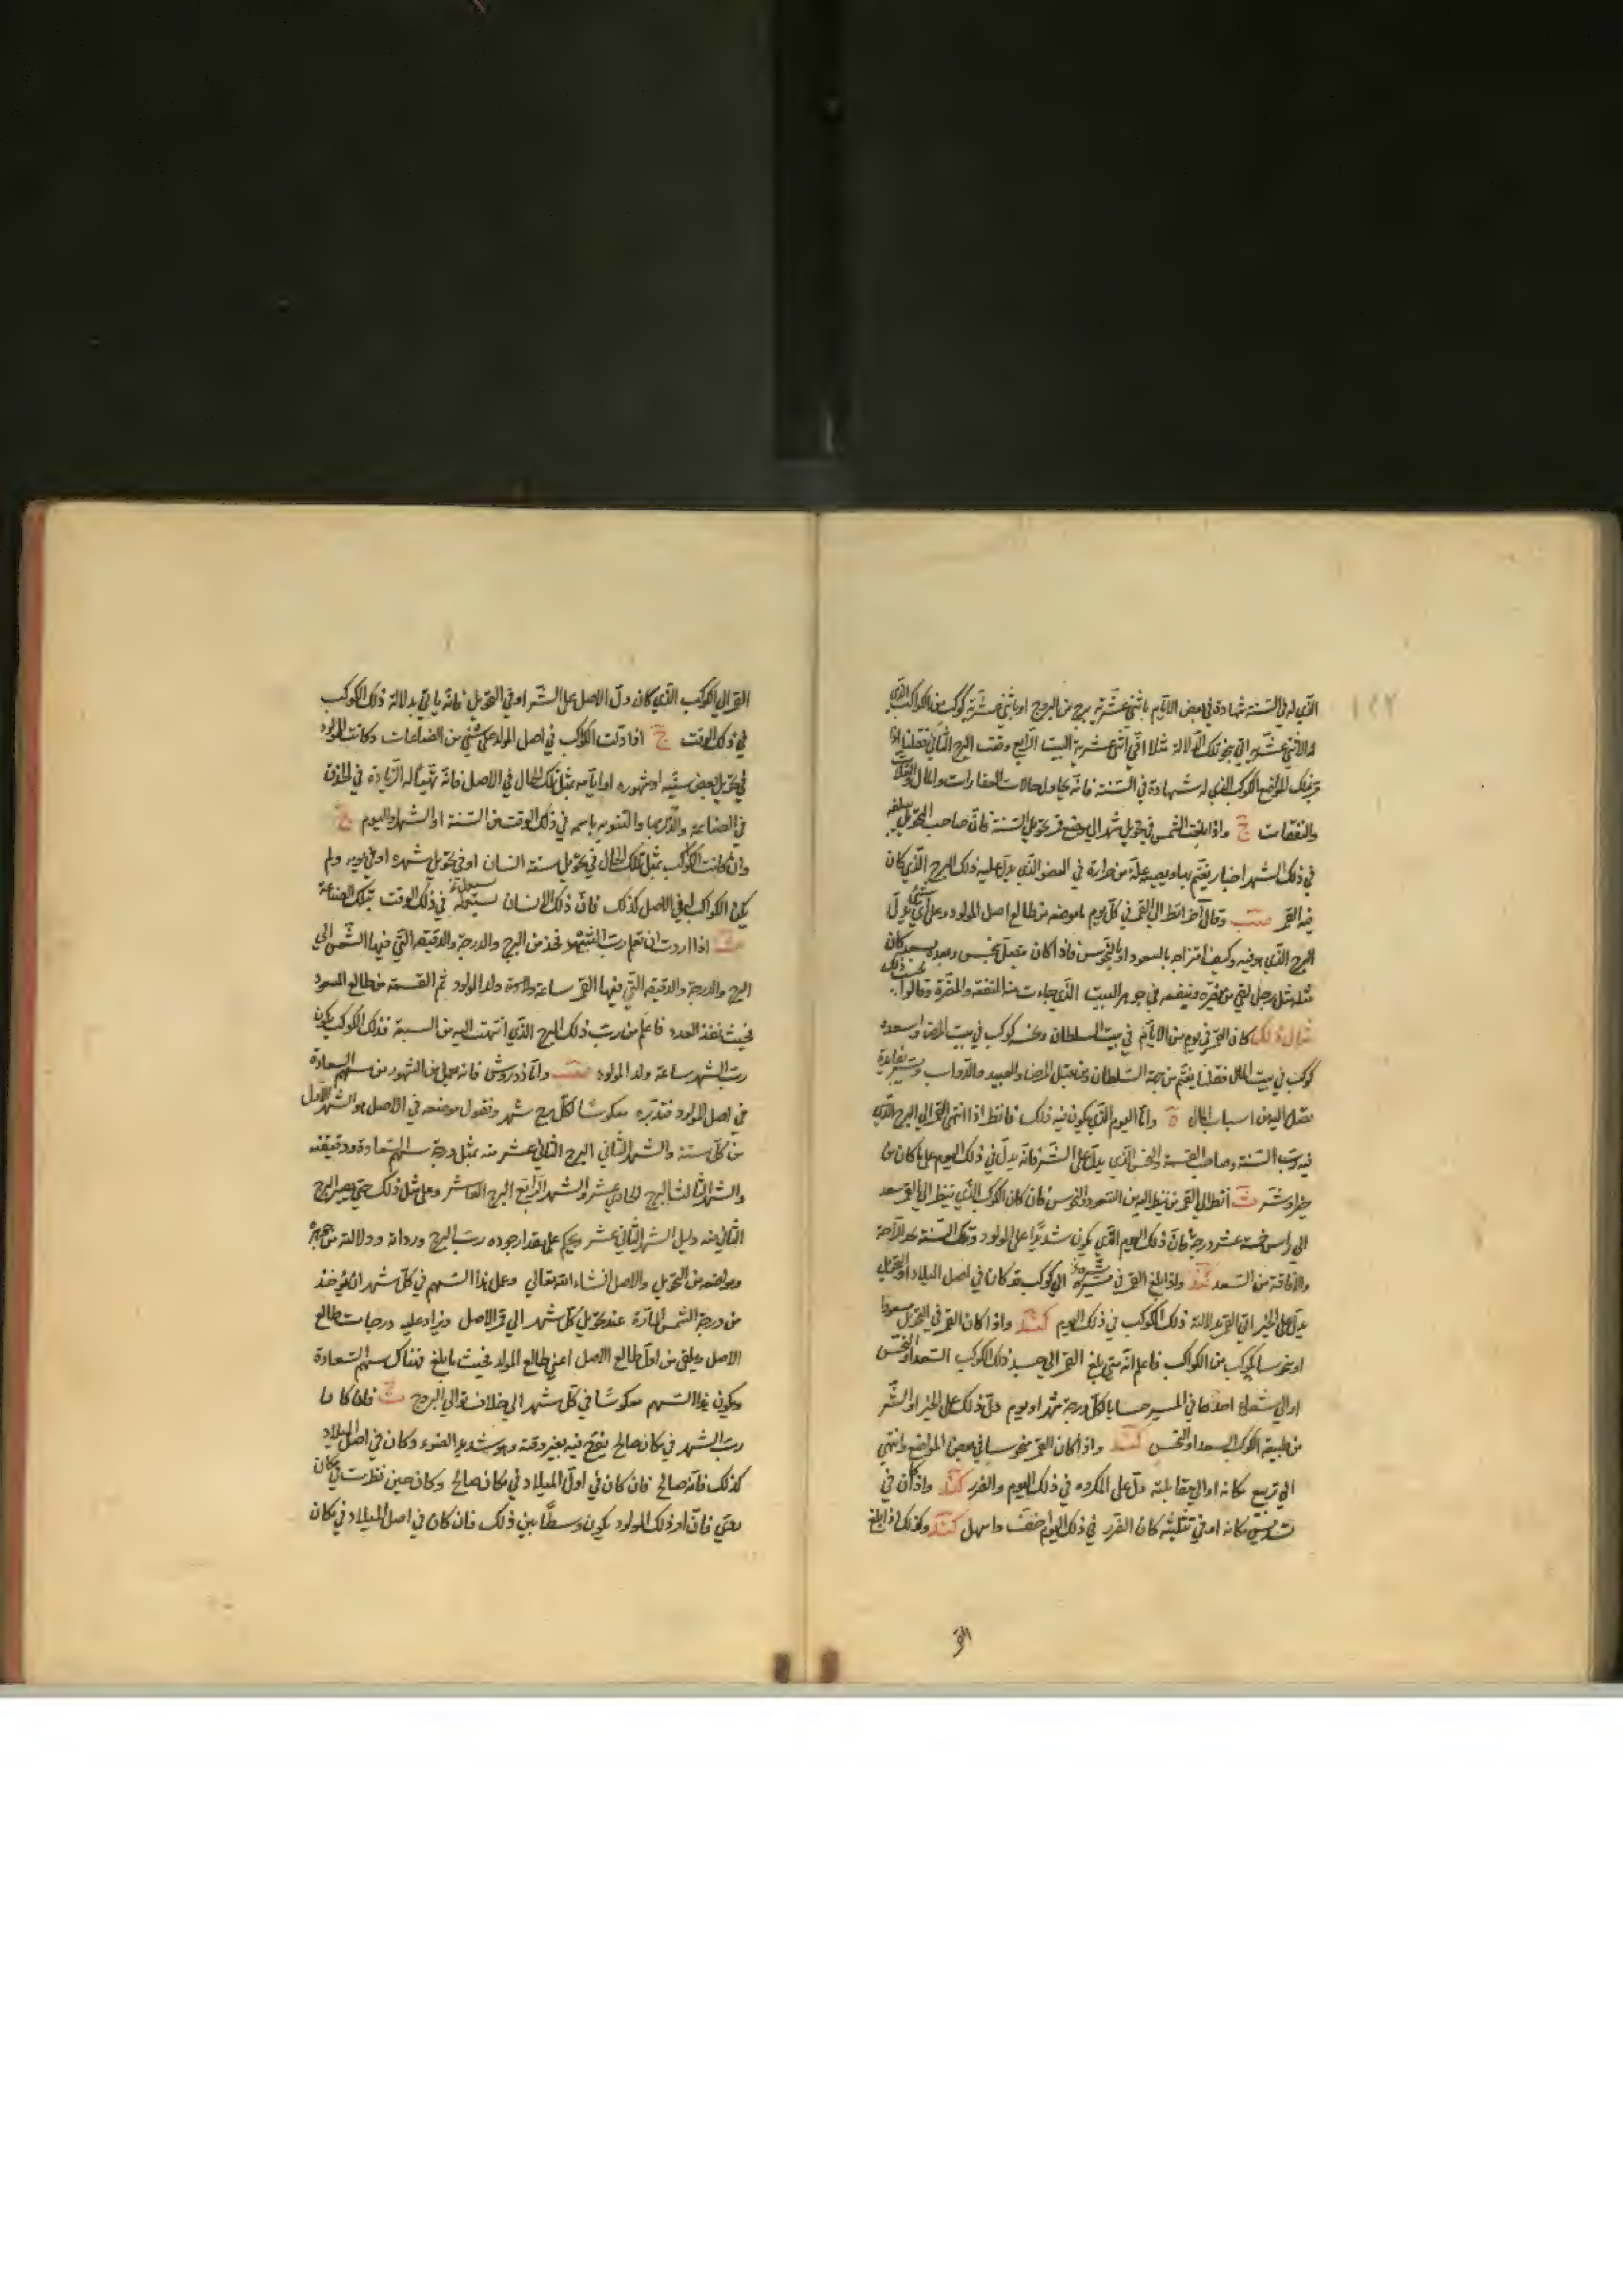 الذي له في السنة شهادة في بعض الايام باثنى عشرية برج من البروج او باثنى عشرية كوكب من الكواكب الذي
تلك المواضع الكوكب الذي له شهادة في السنة فانه يحاول حالات العقارات والمال
والنفقات واذا بلغت الشمس في تحويل شهر الى موضع قمر تحويل السنة فان صاحب التحويل يبلغه
في ذلك الشهر اخبار يغتم بها ويصيبه علة من حرارة في العضو الذي يدل عليه ذلك البرج الذي كان
فيه القمر وقال آخر انظر الى القمر في كل يوم ما موضعه من طالع اصل المولود وعلى اي شي يدل
البرج الذي هو فيه وكيف امتزاجه بالسعود او بالنحوس فاذا كان متصل بنحس وبعده بسعد كان
مثله مثل رجل لقي من يضره وينفعه في جوهر البيت الذي جاءت منه المنفعة والمضرة وقالوا
مثال ذلك كان القمر في يوم من الايام في بيت السلطان ونحسه كوكب في بيت المرض واسعده
كوكب في بيت المال فقلنا يغتم من جهة السلطان ومن قبل المرضا والعبيد والدواب
اليه من اسباب المال واما اليوم الذي يكون فيه ذلك فانظر اذا انتهى القمر الى البرج الذي
فيه رب السنة وصاحب القسمة والنحس الذي يدل على الشر فانه يدل في ذلك اليوم على ما كان من
خير او شر انظر الى القمر من ينظر اليه من السعود والنحوس فان كان الكوكب الذي ينظر الى القمر سعد
الى راس خمسة عشر درجة فان ذلك اليوم الذي يكون شديدا على المولود وتلك السنة بعد الراحة
والافاقة من السعد واذا بلغ القمر في مسيره الى كوكب قد كان في اصل الميلاد او التحويل
يدل على الخير اتى القمر بدلالة ذلك الكوكب في ذلك اليوم واذا كان القمر في التحويل مسعودا
او منحوسا بكوكب من الكواكب فاعلم انه متى بلغ القمر الى جسد ذلك الكوكب السعد او النحس
او الى شعاع احدها في المسير حسابا لكل درجة شهر او يوم دل ذلك على الخير او الشر
من طبيعة الكوكب السعد او النحس واذا كان القمر منحوسا في بعض المواضع وانتهى
الى تربيع مكانه او الى مقابلته دل على المكروه في ذلك اليوم والضرر واذا كان في
تسديس مكانه او في تثليثه كان الضرر في ذلك اليوم اخف واسهل وكذلك اذا بلغ
القمر
القمر الى الكوكب الذي كان دل في الاصل على الشر او في التحويل فانه ياتي بدلالة ذلك الكوكب
في ذلك الوقت اذا دلت الكواكب في اصل المولد على شي من الصناعات وكانت للمولود
في تحويل بعض سنيه او شهوره او ايامه بمثل تلك الحال في الاصل فانه تهيأ له الزيادة في الحذق
في الصناعة والدربة بها والتنويه باسمه في ذلك الوقت من السنة او الشهر واليوم
وان كانت الكواكب بمثل تلك الحال في تحويل سنة انسان او في تحويل شهره او في يومه ولم
يكن الكواكب له في الاصل كذلك فان ذلك الانسان في ذلك الوقت بتلك الصناعة
اذا اردت ان تعلم رب الشهر فخذ من البرج والدرجة والدقيقة التي فيها الشمس الى
البرج والدرجة والدقيقة التي فيها القمر ساعة ولد المولود ثم القسمة من طالع المولود
فحيث نفذ العدد فاعلم من رب ذلك البرج الذي انتهت اليه من السبعة فذلك الكوكب يكون
رب الشهر ساعة ولد المولود واما ذوروثيوس فانه يعمل من الشهور من سهم السعادة
في اصل المولود فتديره معكوسا لكل برج شهر وتقول موضعه في الاصل هو الشهر الاول
من كل سنة والشهر الثاني البرج الثاني عشر منه بمثل درجة سهم السعادة ودقيقته
والشهر الثالث البرج الحادي عشر والشهر الرابع البرج العاشر وعلى مثل ذلك حتى يصير البرج
الثاني منه دليل الشهر الثاني عشر ويحكم على مقدار جودة رب البرج ورداته ودلالته من جوهره
ومواضعه من التحويل والاصل انشاء الله تعالى وعمل هذا السهم في كل شهر ان يوخذ
من درجة الشمس المارة عند تحويل كل شهر الى قمر الاصل ويزاد عليه درجات طالع
الاصل ويلقى من اول طالع الاصل اعني طالع المولد فحيث ما بلغ فهناك سهم السعادة
ويكون هذا السهم معكوسا في كل شهر الى خلاف توالي البروج فان كان
رب الشهر في مكان صالح يفرح فيه بغير وقته وهو شديد الضوء وكان في اصل الميلاد
كذلك فانه صالح فان كان في اول الميلاد في مكان صالح وكان حين نظرت في مكان
ردي فان امر ذلك المولود يكون وسطا بين ذلك فان كان في اصل الميلاد في مكان